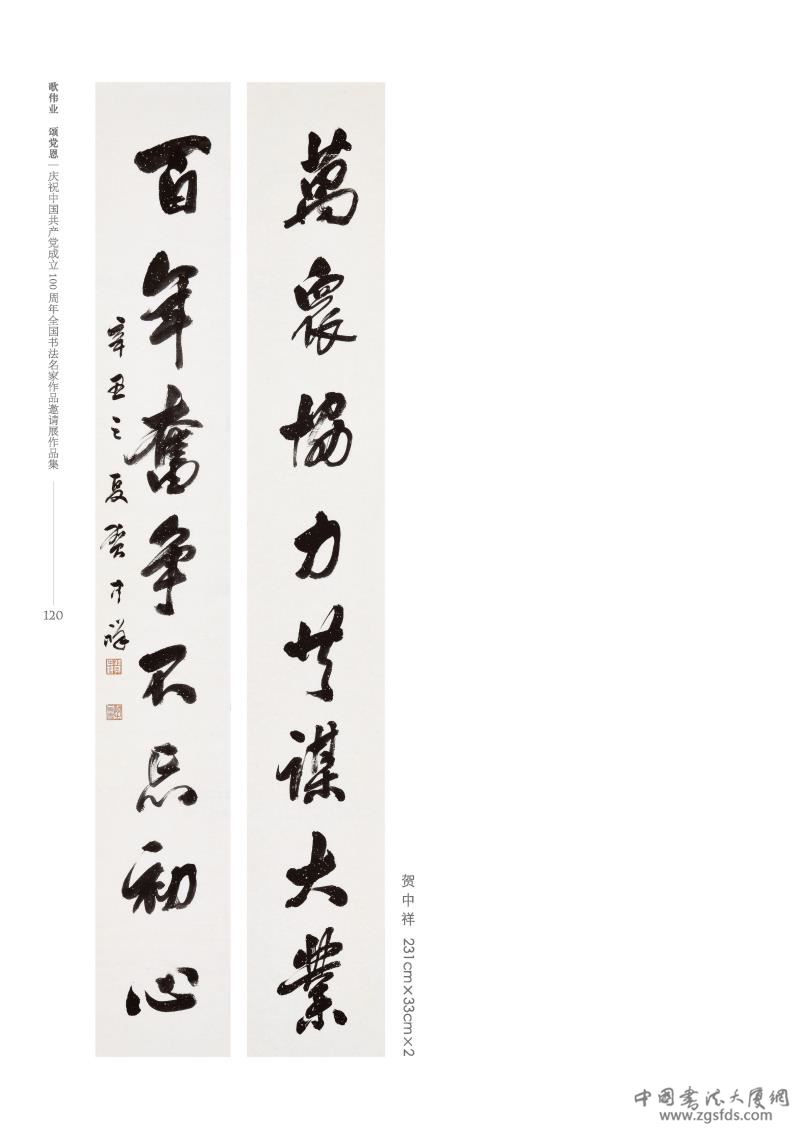 萬衆協力共謀大業
百年奮争不忘初心
辛丑之夏賀中祥
贺中祥 231cm×33cm×2
歌伟业 颂党恩 | 庆祝中国共产党成立100周年全国书法名家作品邀请展作品集
120
中国书法大厦網
www.zgsfds.com